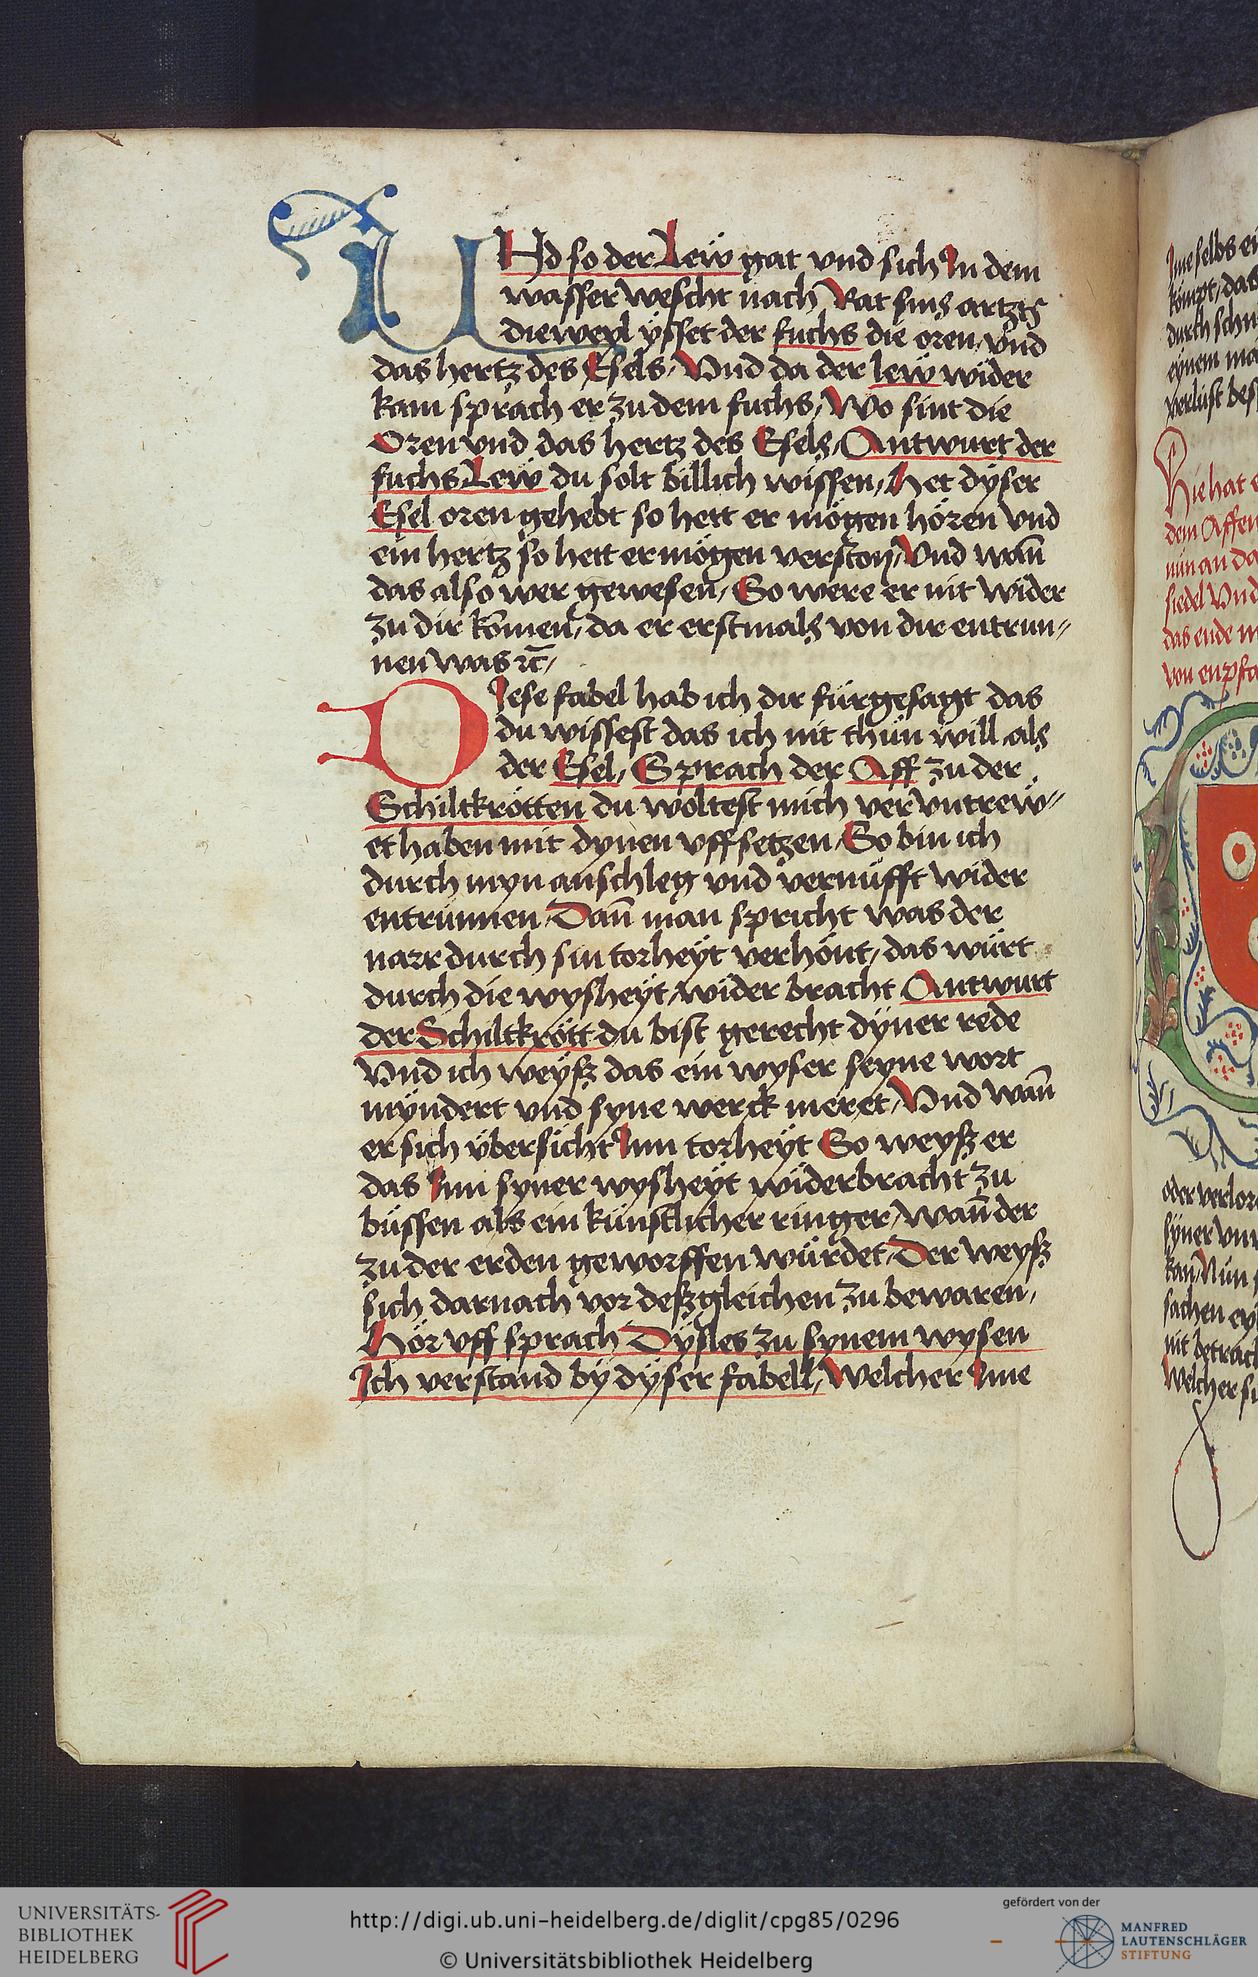 UNd so der Lew gat vnd sich In dem
wasser wescht nach Rat sins artzts
die weyl ysset der fuchs die oren vnd
das hertz des Esels / Vnd da der lew wider
kam sprach er zu dem fuchs / Wo sint die
Oren vnd das hertz des Esels / Antwurt der
fuchs / Lew du solt billich wissen / Het dyser
Esel oren gehebt so hett er mögen hören vnd
ein hertz so hett er mögen verston / Vnd wan̄
das also wer gewesen / So were er nit wider
zu dir komen / da er erstmals von dir entrun⸗
nen was ꝛc̄ /
DIese fabel hab ich dir fürgesagt das
du wissest das ich nit thün will als
der Esel / Sprach der Aff zu der
Schiltkrötten du woltest mich vervntrew⸗
et haben mit dynen vffsetzen / So bin ich
durch myn anschleg vnd vernüfft wider
entrünnen / Dan̄ man spricht was der
narr durch sin torheyt verhönt / das würt
durch die wysheyt / wider bracht Antwurt
der Schiltkrött du bist gerecht dyner rede
Vnd ich weyß das ein wyser seyne wort
myndert vnd syne werck meret / Vnd wan̄
er sich übersicht Inn torheyt So weyß er
das Inn syner wysheyt widerbracht zu
büssen als ein künstlicher ringer / wan̄ der
zu der erden geworffen würdet / Der weyß
sich darnach vor deßgleichen zu bewaren /
Hör vff sprach Dysles zu synem wysen
Ich verstand by dyser fabell / Welcher Ime
Ime selbs ei
kompt / das
durch schn
eynem ma
verlust bes
Hie hat e
dem Affen
nün an da
siedel Vnd
das ende m
von enpfa
oder verlor
syner vnv
kan / Nün s
sachen ey
nit betrach
Welcher si
UNIVERSITÄTS-
BIBLIOTHEK
HEIDELBERG
http://digi.ub.uni-heidelberg.de/diglit/cpg85/0296
© Universitätsbibliothek Heidelberg
gefördert von der
MANFRED
LAUTENSCHLÄGER
STIFTUNG